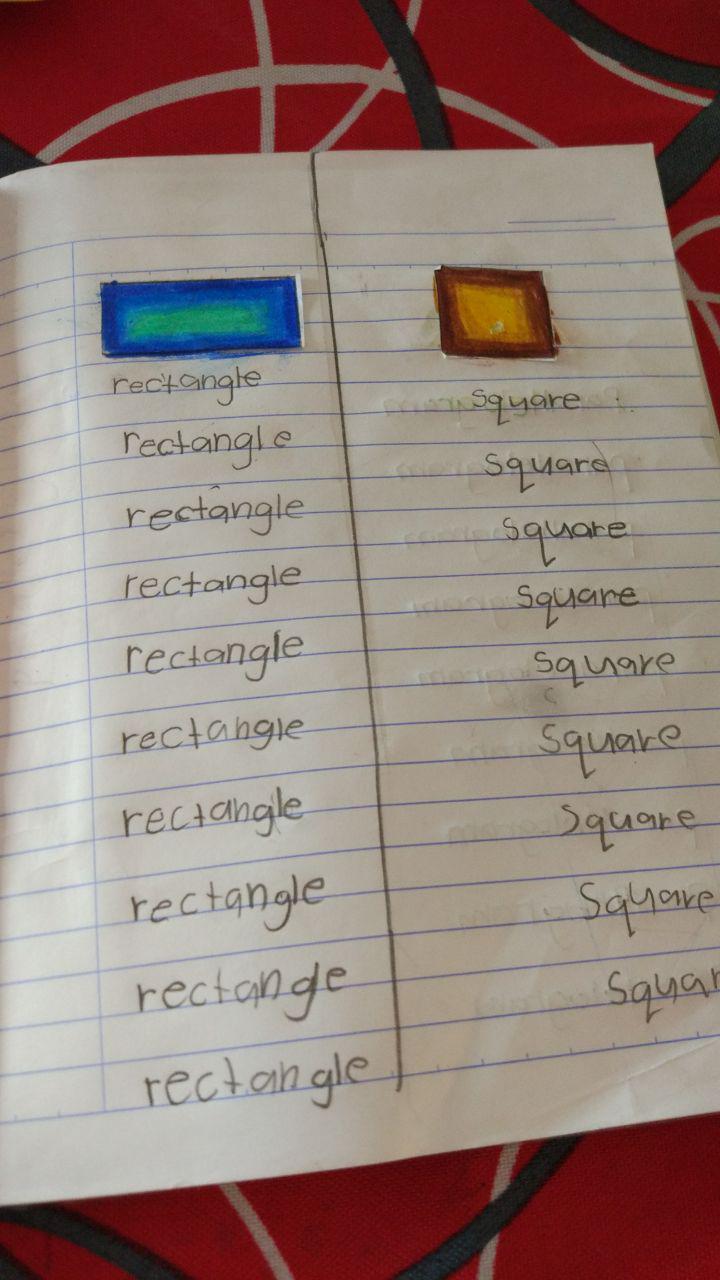 rectangle
rectangle
rectangle
rectangle
rectangle
rectangle
rectangle
rectangle
rectange
rectangle
square
square
square
square
square
square
square
square
squar